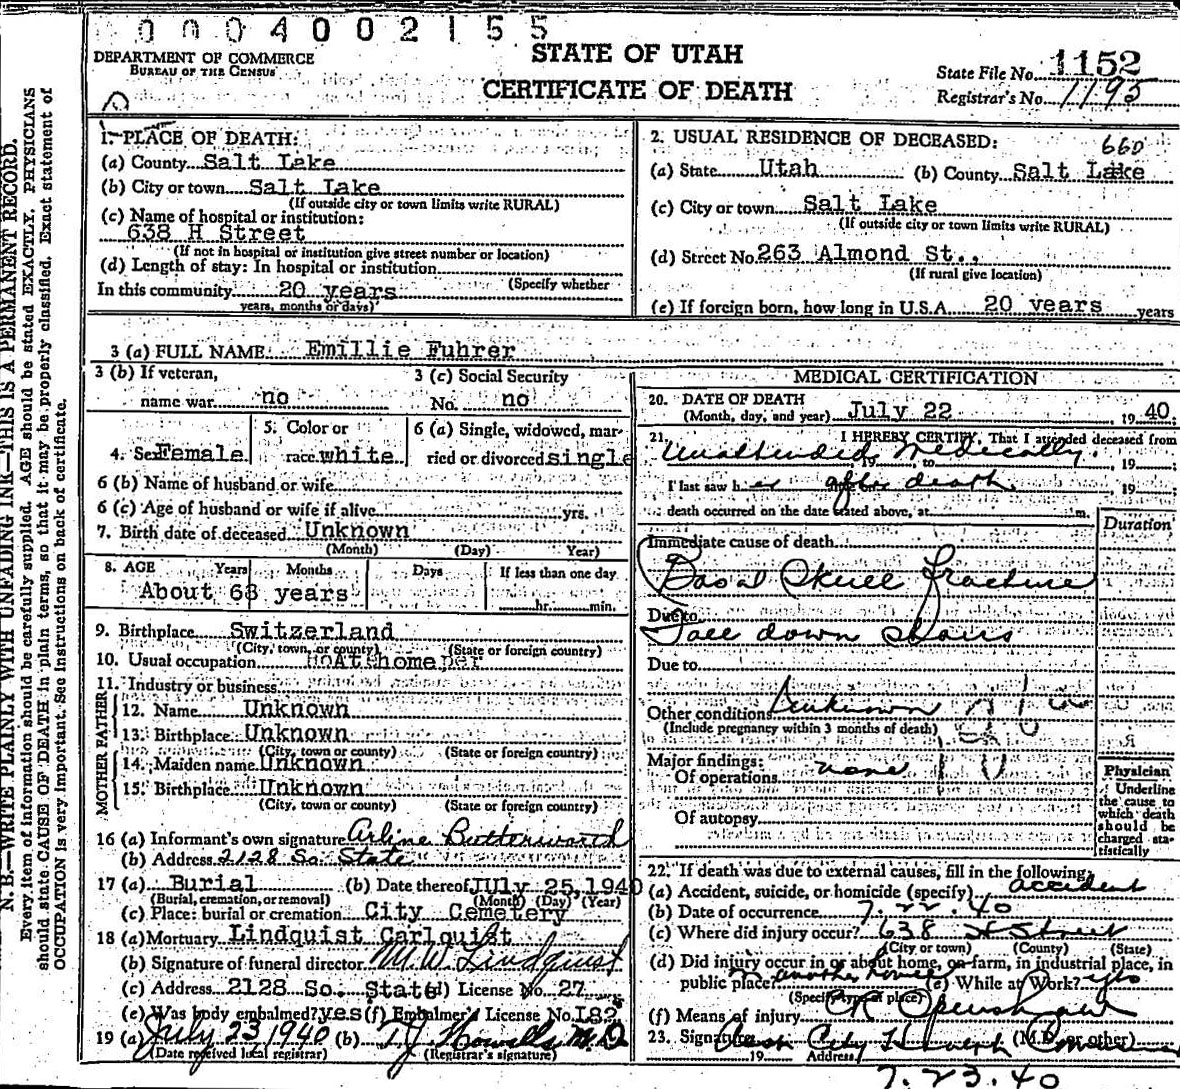 0004002155
DEPARTMENT OF COMMERCE
BUREAU OF THE CENSUS
STATE OF UTAH
CERTIFICATE OF DEATH
State File No. 1152
Registrar's No. 1195
N. B.—WRITE PLAINLY WITH UNFADING INK—THIS IS A PERMANENT RECORD.
Every item of information should be carefully supplied. AGE should be stated EXACTLY. PHYSICIANS
should state CAUSE OF DEATH in plain terms, so that it may be properly classified. Exact statement of
OCCUPATION is very important. See instructions on back of certificate.
1. PLACE OF DEATH:
(a) County Salt Lake
(b) City or town Salt Lake
(If outside city or town limits write RURAL)
(c) Name of hospital or institution:
638 H Street
(If not in hospital or institution give street number or location)
(d) Length of stay: In hospital or institution
(Specify whether
In this community 20 years
years, months or days)
2. USUAL RESIDENCE OF DECEASED:
660
(a) State Utah (b) County Salt Lake
(c) City or town Salt Lake
(If outside city or town limits write RURAL)
(d) Street No. 263 Almond St.,
(If rural give location)
(e) If foreign born, how long in U.S.A. 20 years years
3 (a) FULL NAME Emillie Fuhrer
3 (b) If veteran,
name war no
3 (c) Social Security
No. no
4. Sex Female
5. Color or
race white
6 (a) Single, widowed, mar-
ried or divorced single
6 (b) Name of husband or wife
6 (c) Age of husband or wife if alive yrs.
7. Birth date of deceased Unknown
(Month) (Day) Year)
8. AGE Years Months Days If less than one day
About 68 years
hr. min.
9. Birthplace Switzerland
(City, town, or county) (State or foreign country)
10. Usual occupation At home
11. Industry or business
FATHER
12. Name Unknown
13. Birthplace Unknown
(City, town or county) (State or foreign country)
MOTHER
14. Maiden name Unknown
15. Birthplace Unknown
(City, town or county) (State or foreign country)
16 (a) Informant's own signature Arline Butterworth
(b) Address 2128 So. State
17 (a) Burial (b) Date thereof July 25, 1940
(Burial, cremation, or removal) (Month) (Day) (Year)
(c) Place: burial or cremation City Cemetery
18 (a) Mortuary Lindquist Carlquist
(b) Signature of funeral director M.W. Lindquist
(c) Address 2128 So. State (d) License No. 27
(e) Was body embalmed? yes (f) Embalmer's License No. 182
19 (a) July 23 1940 (b) T.J. Howells M.D.
(Date received local registrar) (Registrar's signature)
MEDICAL CERTIFICATION
20. DATE OF DEATH
(Month, day, and year) July 22 1940
21. I HEREBY CERTIFY, That I attended deceased from
Unattended Medically.
19 , to , 19
I last saw her after death , 19
death occurred on the date stated above, at m.
Duration
Immediate cause of death
Basal Skull Fracture
Due to
Fall down stairs
Due to
Other conditions Unknown
(Include pregnancy within 3 months of death)
Major findings:
Of operations none
Of autopsy
Physician
Underline
the cause to
which death
should be
charged sta-
tistically
22. If death was due to external causes, fill in the following:
(a) Accident, suicide, or homicide (specify) accident
(b) Date of occurrence 7.22.40
(c) Where did injury occur? 638 H Street
(City or town) (County) (State)
(d) Did injury occur in or about home, on farm, in industrial place, in
public place? In another home (e) While at Work? yes
(Specify type of place)
(f) Means of injury
23. Signature (M.D. or other)
19 Address
7.23.40